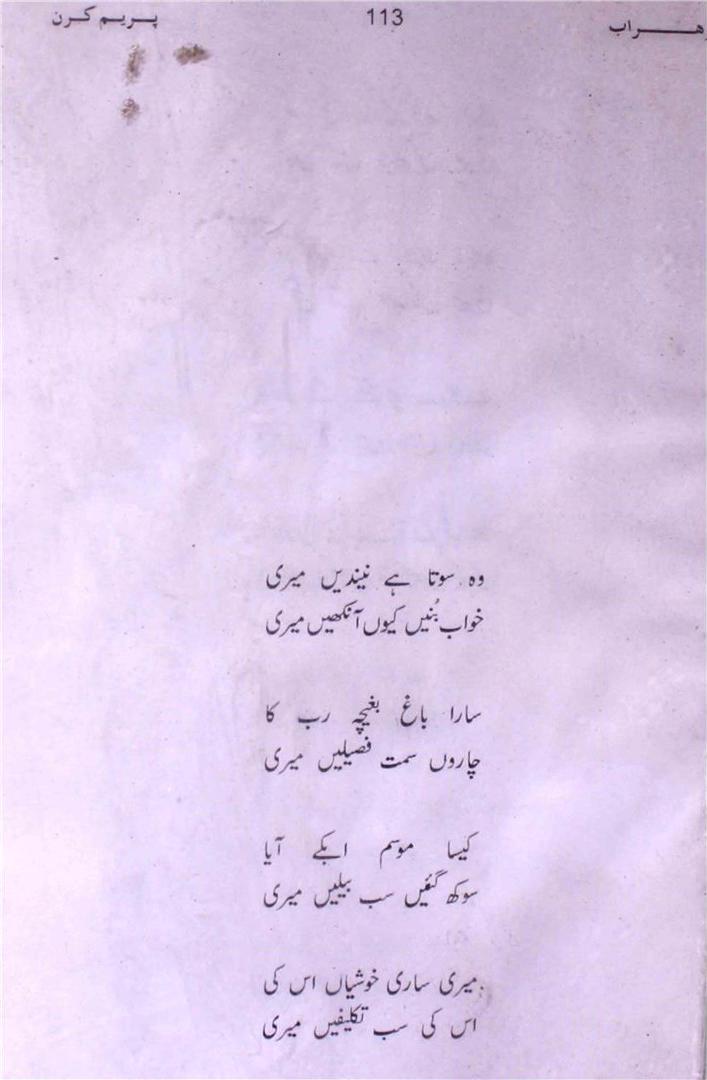 ھراب
113
پریم کرن
وہ سوتا ہے نیندیں میری
خواب بُنیں کیوں آنکھیں میری
سارا باغ بغیچہ رب کا
چاروں سمت فصیلیں میری
کیسا موسم ابکے آیا
سوکھ گئیں سب بیلیں میری
میری ساری خوشیاں اس کی
اس کی سب تکلیفیں میری